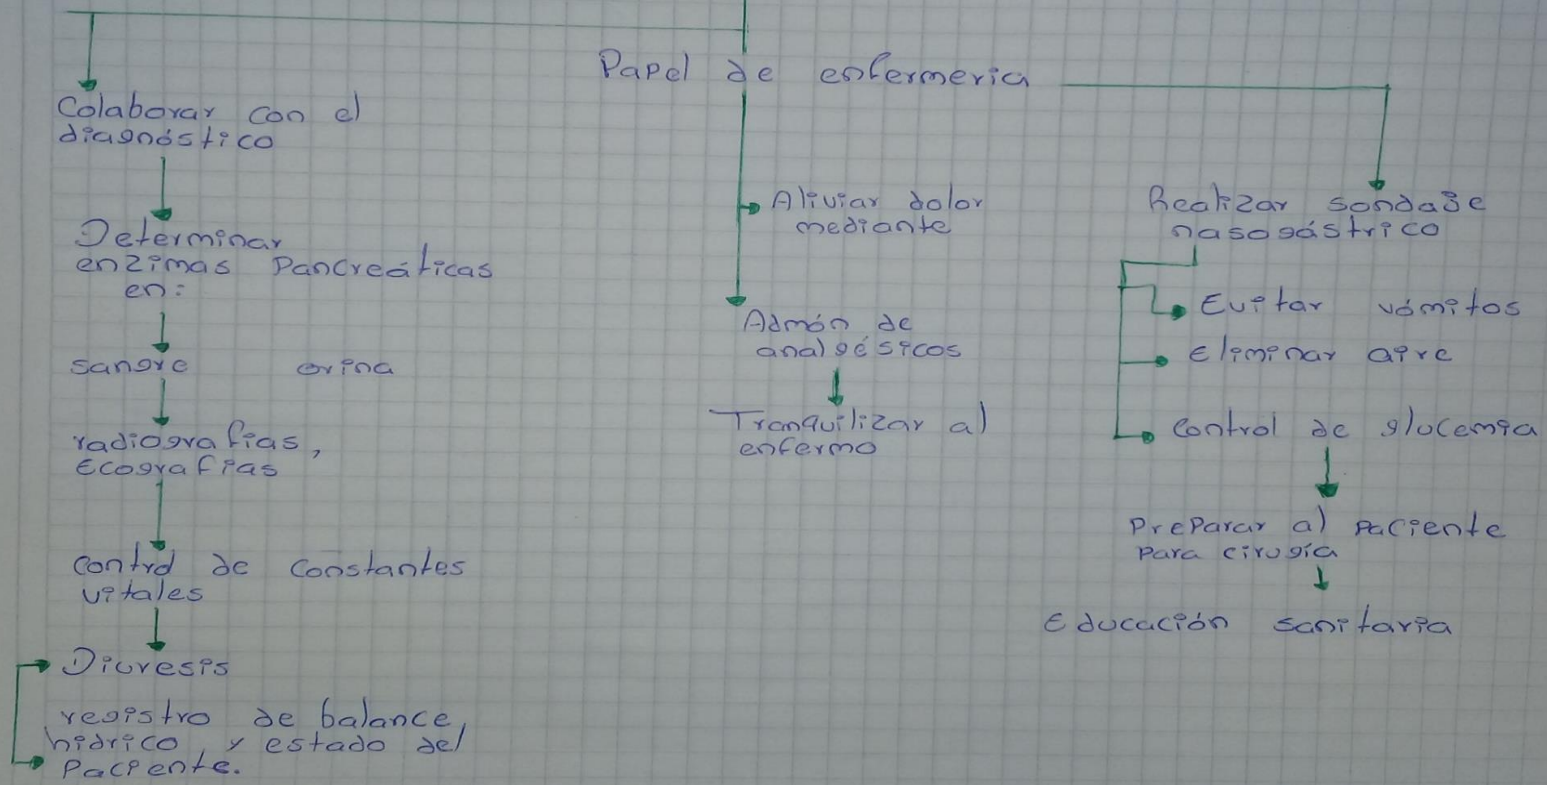 Papel de enfermeria
Colaborar con el
diagnóstico
Determinar
enzimas Pancreáticas
en:
sangre orina
radiografias,
Ecografias
control de constantes
vitales
Diuresis
registro de balance,
hidrico, y estado del
Paciente.
Aliviar dolor
mediante
Admón de
analgésicos
Tranquilizar al
enfermo
Realizar sondaje
nasogástrico
Evitar vómitos
Eliminar aire
control de glucemia
Preparar al paciente
para cirugía
Educación sanitaria